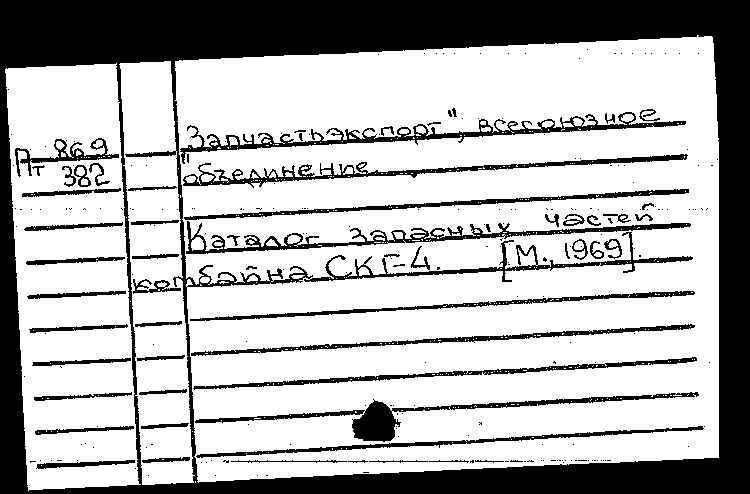 Пт 869
382
Запчастьэкспорт", всесоюзное
"объединение.
Каталог запасных частей
комбайна СКГ-4. [М., 1969].